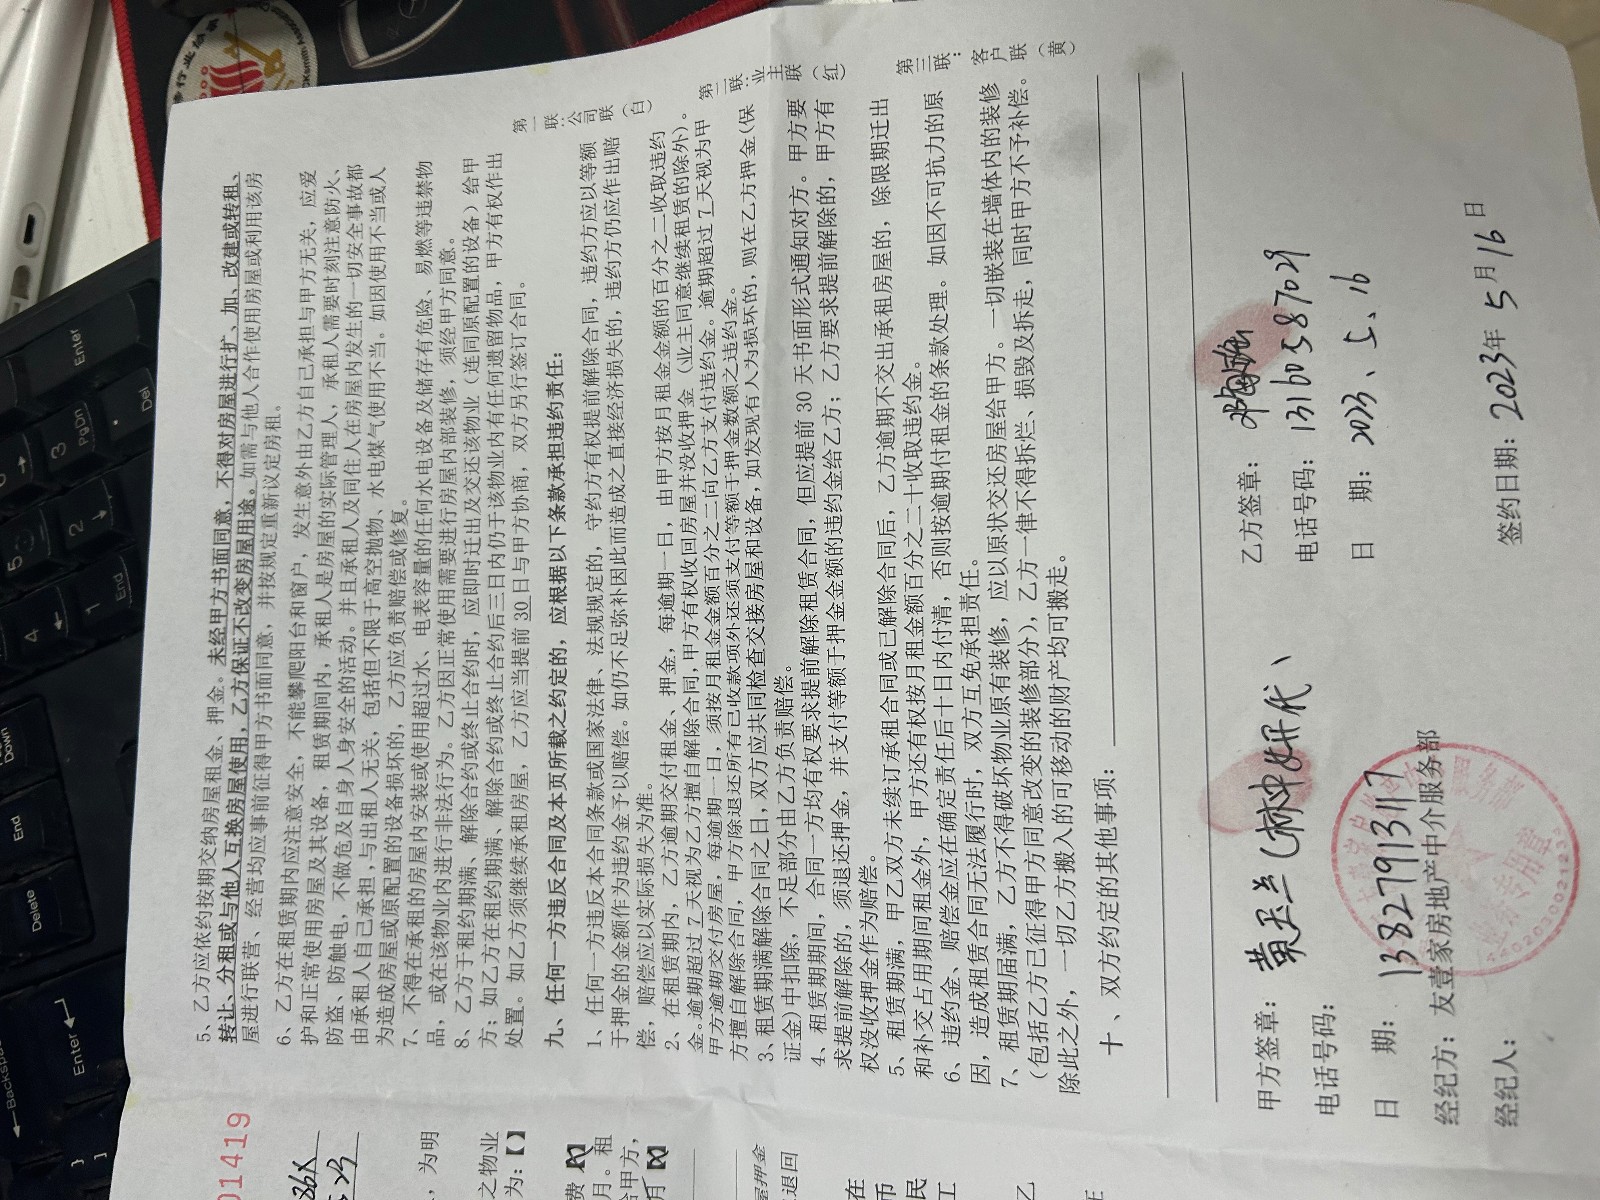 5、乙方应依约按期交纳房屋租金、押金。未经甲方书面同意，不得对房屋进行扩、加、改建或转租、
转让、分租或与他人互换房屋使用，乙方保证不改变房屋用途。如需与他人合作使用房屋或利用该房
屋进行联营、经营均应事前征得甲方书面同意，并按规定重新议定房租。
6、乙方在租赁期内应注意安全，不能攀爬阳台和窗户，发生意外由乙方自己承担与甲方无关，应爱
护和正常使用房屋及其设备，租赁期间内，承租人是房屋的实际管理人，承租人需要时刻注意防火、
防盗、防触电，不做危及自身人身安全的活动。并且承租人及同住人在房屋内发生的一切安全事故都
由承租人自己承担，与出租人无关，包括但不限于高空抛物、水电煤气使用不当。如因使用不当或人
为造成房屋或原配置的设备损坏的，乙方应负责赔偿或修复。
7、不得在承租的房屋内安装或使用超过水、电表容量的任何水电设备及储存有危险、易燃等违禁物
品，或在该物业内进行非法行为。乙方因正常使用需要进行房屋内部装修，须经甲方同意。
8、乙方于租约期满、解除合约或终止合约时，应即时迁出及交还该物业（连同原配置的设备）给甲
方；如乙方在租约期满、解除合约或终止合约后三日内仍于该物业内有任何遗留物品，甲方有权作出
处置。如乙方须继续承租房屋，乙方应当提前30日与甲方协商，双方另行签订合同。
九、任何一方违反合同及本页所载之约定的，应根据以下条款承担违约责任：
1、任何一方违反本合同条款或国家法律、法规规定的，守约方有权提前解除合同，违约方应以等额
于押金的金额作为违约金予以赔偿。如仍不足弥补因此而造成之直接经济损失的，违约方仍应作出赔
偿，赔偿应以实际损失为准。
2、在租赁期内，乙方逾期交付租金、押金，每逾期一日，由甲方按月租金金额的百分之二收取违约
金。逾期超过7天视为乙方擅自解除合同，甲方有权收回房屋并没收押金（业主同意继续租赁的除外）。
甲方逾期交付房屋，每逾期一日，须按月租金金额百分之二向乙方支付违约金。逾期超过7天视为甲
方擅自解除合同，甲方除退还所有已收款项外还须支付等额于押金数额之违约金。
3、租赁期满解除合同之日，双方应共同检查交接房屋和设备，如发现有人为损坏的，则在乙方押金（保
证金）中扣除，不足部分由乙方负责赔偿。
4、租赁期期间，合同一方均有权要求提前解除租赁合同，但应提前30天书面形式通知对方。甲方要
求提前解除的，须退还押金，并支付等额于押金金额的违约金给乙方；乙方要求提前解除的，甲方有
权没收押金作为赔偿。
5、租赁期满，甲乙双方未续订承租合同或已解除合同后，乙方逾期不交出承租房屋的，除限期迁出
和补交占用期间租金外，甲方还有权按月租金额百分之二十收取违约金。
6、违约金、赔偿金应在确定责任后十日内付清，否则按逾期付租金的条款处理。如因不可抗力的原
因，造成租赁合同无法履行时，双方互免承担责任。
7、租赁期届满，乙方不得破坏物业原有装修，应以原状交还房屋给甲方。一切嵌装在墙体内的装修
（包括乙方已征得甲方同意改变的装修部分），乙方一律不得拆烂、损毁及拆走，同时甲方不予补偿。
除此之外，一切乙方搬入的可移动的财产均可搬走。
十、双方约定的其他事项：
第一联：公司联（白）
第二联：业主联（红）
第三联：客户联（黄）
甲方签章：黄
电话号码：13827913117
日 期：
经纪方：友壹家房地产中介服务部
经纪人：
乙方签章：
电话号码：13160587029
日 期：2023、5、16
签约日期：2023年5月16日
01419
，为明
之物业
为：【】
月。租
给甲方，
屋押金
退回
Backspace
Enter
Delete
End
Page Down
Enter
4
1 End
5
2
3 PgDn
Del